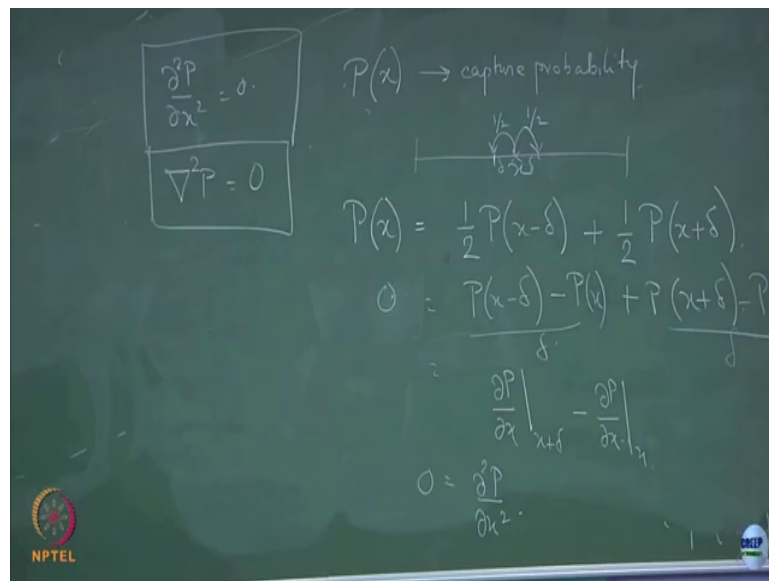 ∂²P/∂x² = 0.
∇²P = 0
P(x) → capture probability
1/2 1/2
δ x δ
P(x) = 1/2 P(x-δ) + 1/2 P(x+δ).
0 = P(x-δ) - P(x)/δ + P(x+δ) - P/δ
= ∂P/∂x |x+δ - ∂P/∂x |x
0 = ∂²P/∂x².
NPTEL
CDEEP